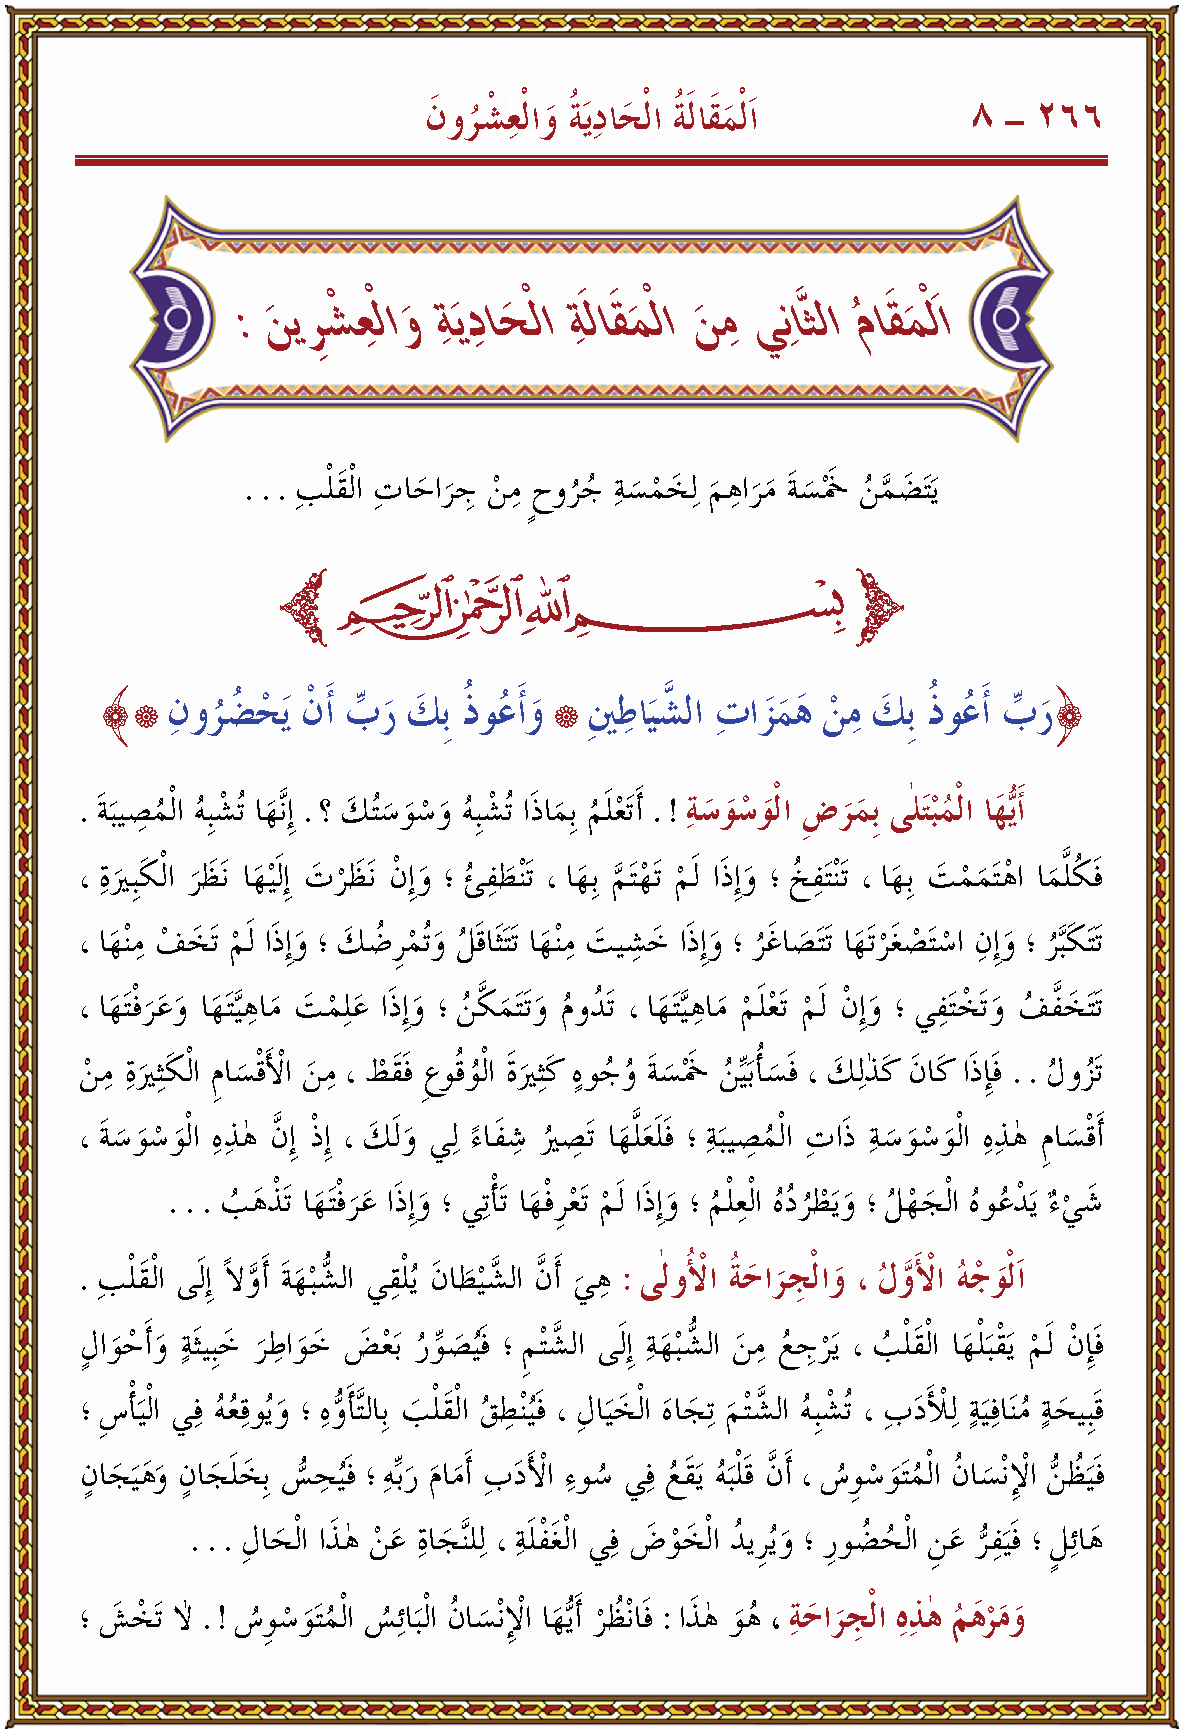 ٢٦٦ – ٨ اَلْمَقَالَةُ الْحَادِيَةُ وَالْعِشْرُونَ
اَلْمَقَامُ الثَّانِي مِنَ الْمَقَالَةِ الْحَادِيَةِ وَالْعِشْرِينَ :
يَتَضَمَّنُ خَمْسَةَ مَرَاهِمَ لِخَمْسَةِ جُرُوحٍ مِنْ جِرَاحَاتِ الْقَلْبِ . . .
بِسْمِ ٱللَّهِ ٱلرَّحْمَٰنِ ٱلرَّحِيمِ
﴿رَبِّ أَعُوذُ بِكَ مِنْ هَمَزَاتِ الشَّيَاطِينِ ۞ وَأَعُوذُ بِكَ رَبِّ أَنْ يَحْضُرُونِ ۞﴾
أَيُّهَا الْمُبْتَلَىٰ بِمَرَضِ الْوَسْوَسَةِ ! . أَتَعْلَمُ بِمَاذَا تُشْبِهُ وَسْوَسَتُكَ ؟ . إِنَّهَا تُشْبِهُ الْمُصِيبَةَ .
فَكُلَّمَا اهْتَمَمْتَ بِهَا ، تَنْتَفِخُ ؛ وَإِذَا لَمْ تَهْتَمَّ بِهَا ، تَنْطَفِئُ ؛ وَإِنْ نَظَرْتَ إِلَيْهَا نَظَرَ الْكَبِيرَةِ ،
تَتَكَبَّرُ ؛ وَإِنِ اسْتَصْغَرْتَهَا تَتَصَاغَرُ ؛ وَإِذَا خَشِيتَ مِنْهَا تَتَثَاقَلُ وَتُمْرِضُكَ ؛ وَإِذَا لَمْ تَخَفْ مِنْهَا ،
تَتَخَفَّفُ وَتَخْتَفِي ؛ وَإِنْ لَمْ تَعْلَمْ مَاهِيَّتَهَا ، تَدُومُ وَتَتَمَكَّنُ ؛ وَإِذَا عَلِمْتَ مَاهِيَّتَهَا وَعَرَفْتَهَا ،
تَزُولُ . . فَإِذَا كَانَ كَذٰلِكَ ، فَسَأُبَيِّنُ خَمْسَةَ وُجُوهٍ كَثِيرَةَ الْوُقُوعِ فَقَطْ ، مِنَ الْأَقْسَامِ الْكَثِيرَةِ مِنْ
أَقْسَامِ هٰذِهِ الْوَسْوَسَةِ ذَاتِ الْمُصِيبَةِ ؛ فَلَعَلَّهَا تَصِيرُ شِفَاءً لِي وَلَكَ ، إِذْ إِنَّ هٰذِهِ الْوَسْوَسَةَ ،
شَيْءٌ يَدْعُوهُ الْجَهْلُ ؛ وَيَطْرُدُهُ الْعِلْمُ ؛ وَإِذَا لَمْ تَعْرِفْهَا تَأْتِي ؛ وَإِذَا عَرَفْتَهَا تَذْهَبُ . . .
اَلْوَجْهُ الْأَوَّلُ ، وَالْجِرَاحَةُ الْأُولَىٰ : هِيَ أَنَّ الشَّيْطَانَ يُلْقِي الشُّبْهَةَ أَوَّلًا إِلَى الْقَلْبِ .
فَإِنْ لَمْ يَقْبَلْهَا الْقَلْبُ ، يَرْجِعُ مِنَ الشُّبْهَةِ إِلَى الشَّتْمِ ؛ فَيُصَوِّرُ بَعْضَ خَوَاطِرَ خَبِيثَةٍ وَأَحْوَالٍ
قَبِيحَةٍ مُنَافِيَةٍ لِلْأَدَبِ ، تُشْبِهُ الشَّتْمَ تِجَاهَ الْخَيَالِ ، فَيُنْطِقُ الْقَلْبَ بِالتَّأَوُّهِ ؛ وَيُوقِعُهُ فِي الْيَأْسِ ؛
فَيَظُنُّ الْإِنْسَانُ الْمُتَوَسْوِسُ ، أَنَّ قَلْبَهُ يَقَعُ فِي سُوءِ الْأَدَبِ أَمَامَ رَبِّهِ ؛ فَيُحِسُّ بِخَلَجَانٍ وَهَيَجَانٍ
هَائِلٍ ؛ فَيَفِرُّ عَنِ الْحُضُورِ ؛ وَيُرِيدُ الْخَوْضَ فِي الْغَفْلَةِ ، لِلنَّجَاةِ عَنْ هٰذَا الْحَالِ . . .
وَمَرْهَمُ هٰذِهِ الْجِرَاحَةِ ، هُوَ هٰذَا : فَانْظُرْ أَيُّهَا الْإِنْسَانُ الْبَائِسُ الْمُتَوَسْوِسُ ! . لَا تَخْشَ ؛